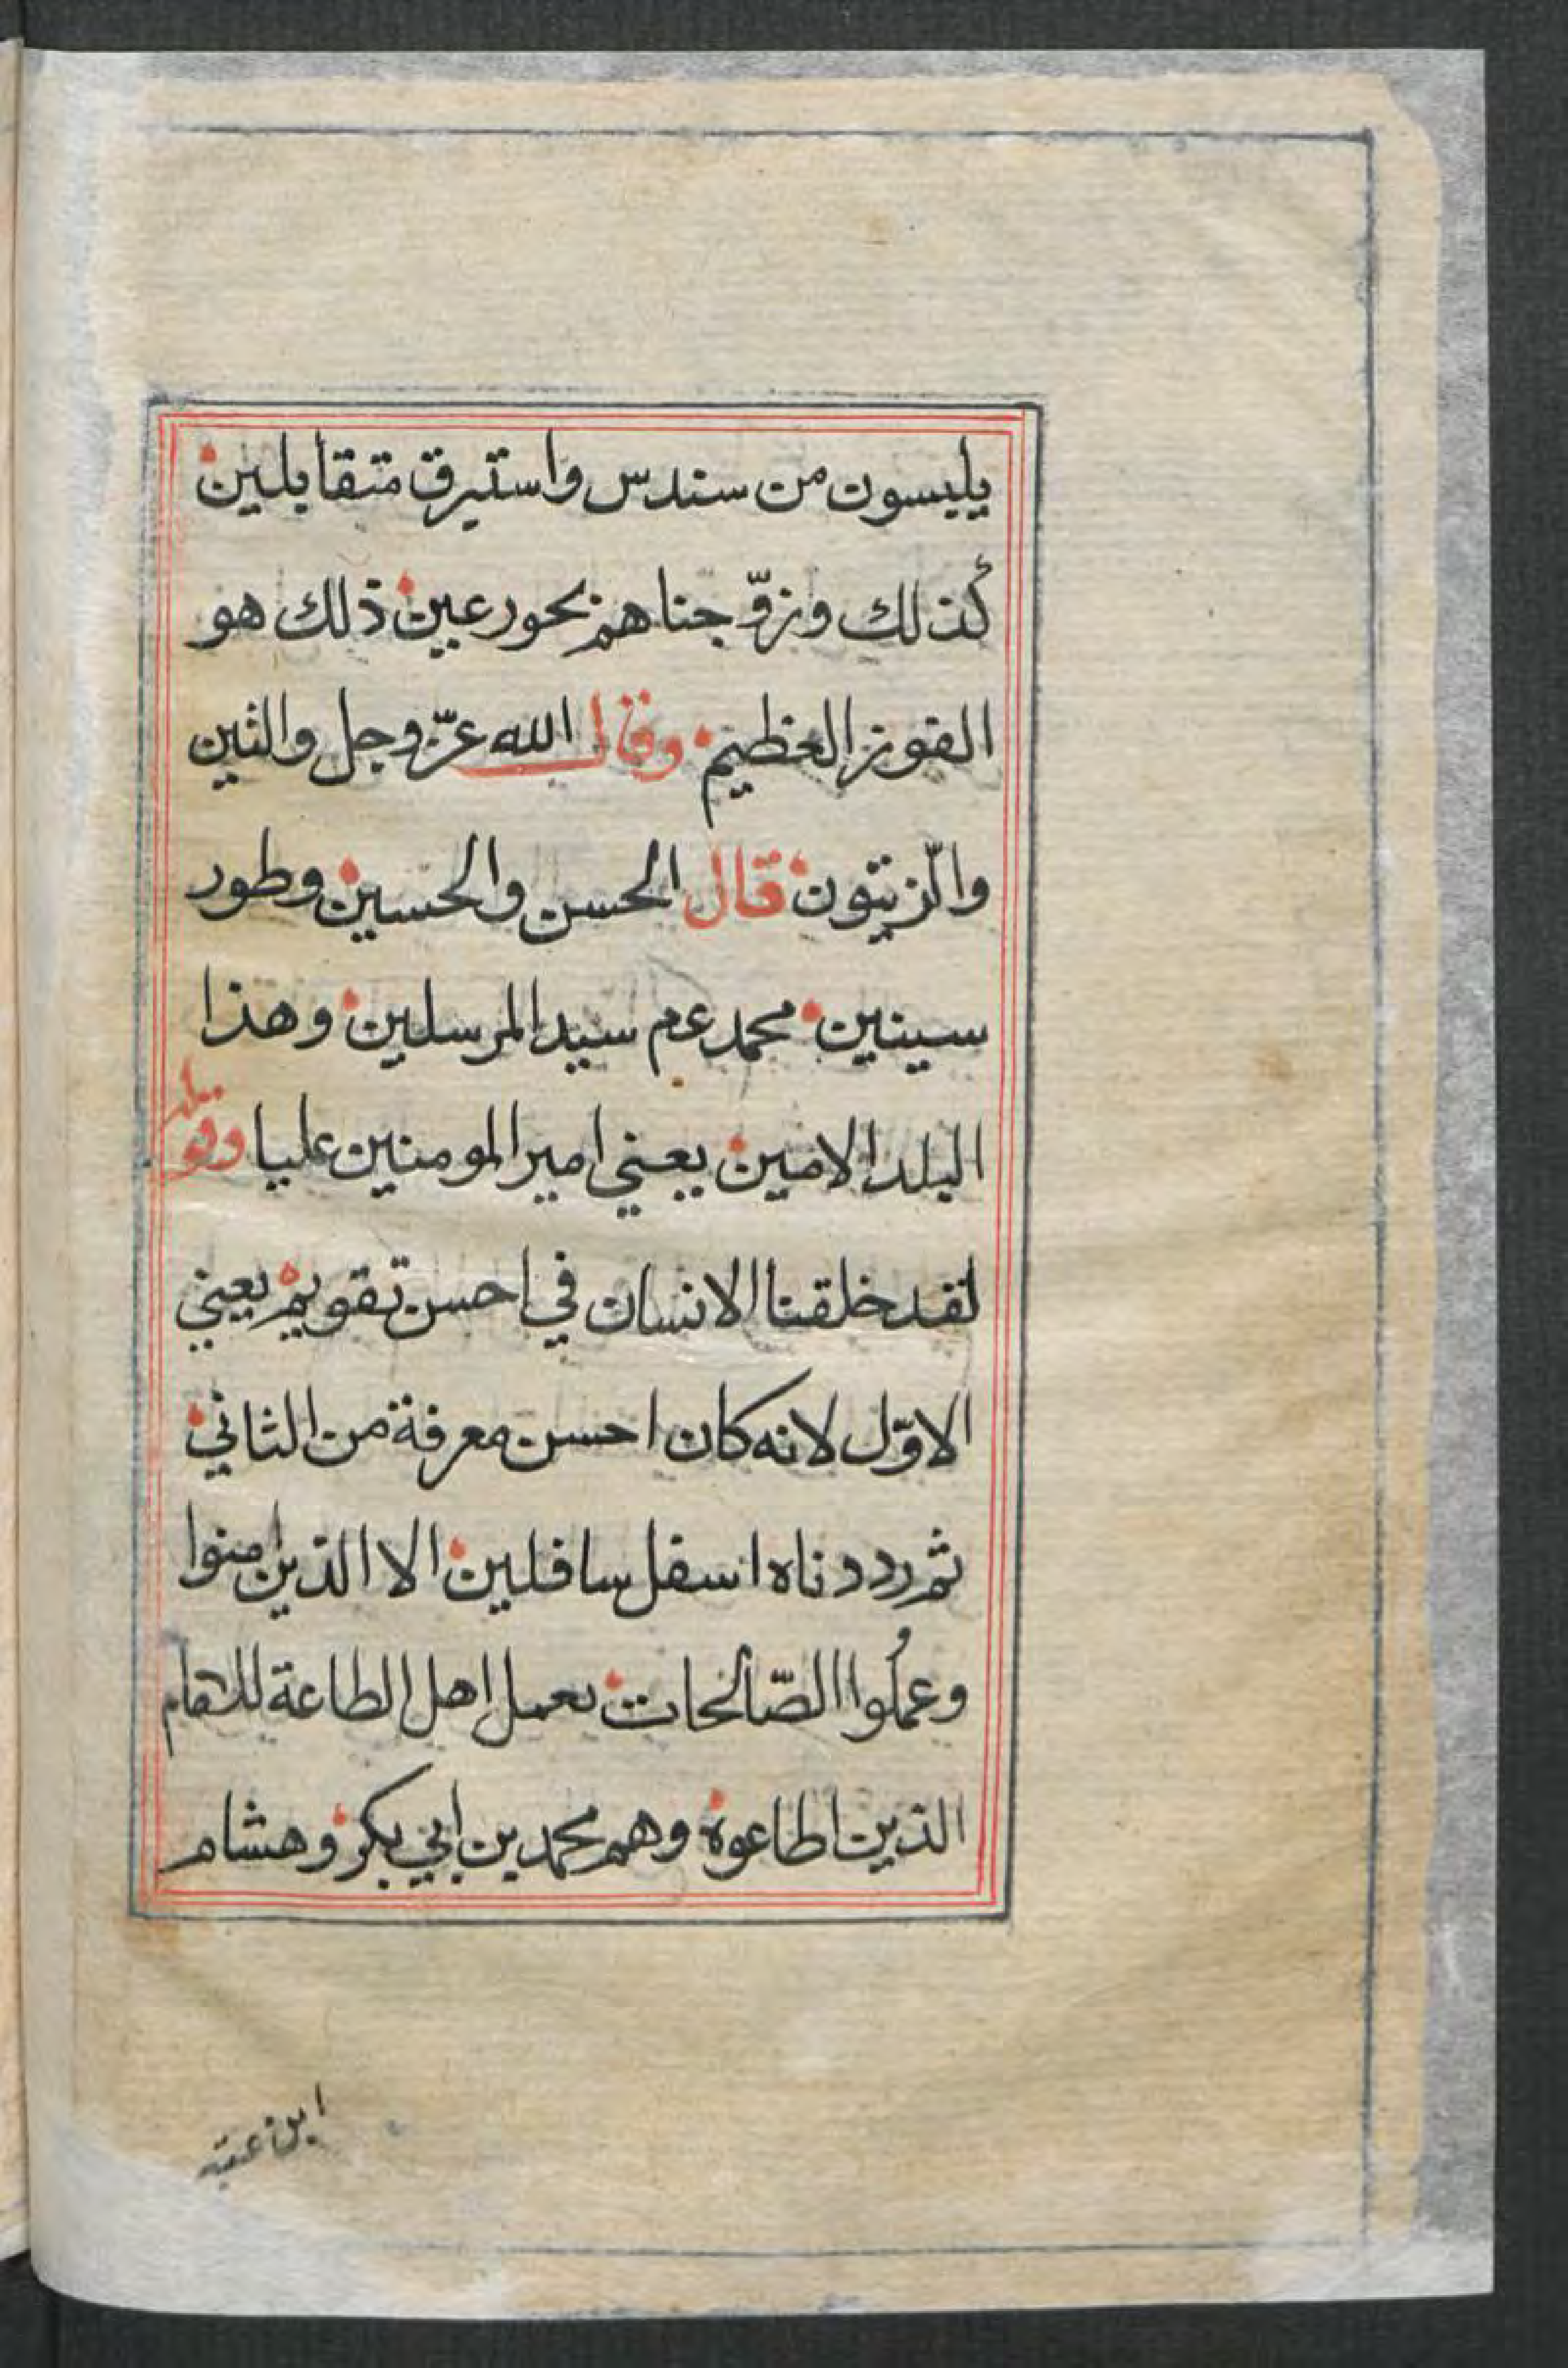 يلبسون من سندس واستبرق متقابلين
كذلك وزوّجناهم بحور عين ذلك هو
الفوز العظيم وقال الله عزّ وجل والتين
والزّيتون قال الحسن والحسين وطور
سينين محمد عم سيد المرسلين وهذا
البلد الامين يعني امير المومنين عليا وقوله
لقد خلقنا الانسان في احسن تقويم يعني
الاوّل لانه كان احسن معرفة من الثاني
ثم رددناه اسفل سافلين الا الذين امنوا
وعملُوا الصّالحات بعمل اهل الطاعة للامام
الذين اطاعوه وهم محمد بن ابي بكر وهشام
ابن عتبه